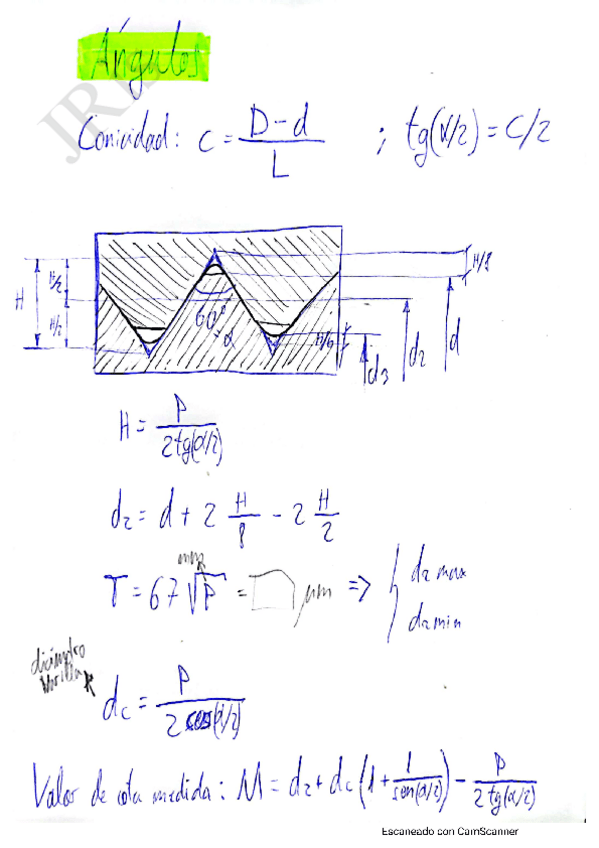 Ángulos
Conicidad: C = (D-d)/L ; tg(α/2) = C/2
H/8
H/2
H
H/2
60º
α
H/6
d3
d2
d
H = P/(2tg(α/2))
d2 = d + 2 H/8 - 2 H/2
mm
T = 67 √P = □ μm => { d2 max
d2 min
diámetro
Varilla
dc = P/(2 cos(α/2))
Valor de cota medida: M = d2 + dc (1 + 1/sen(α/2)) - P/(2 tg(α/2))
Escaneado con CamScanner